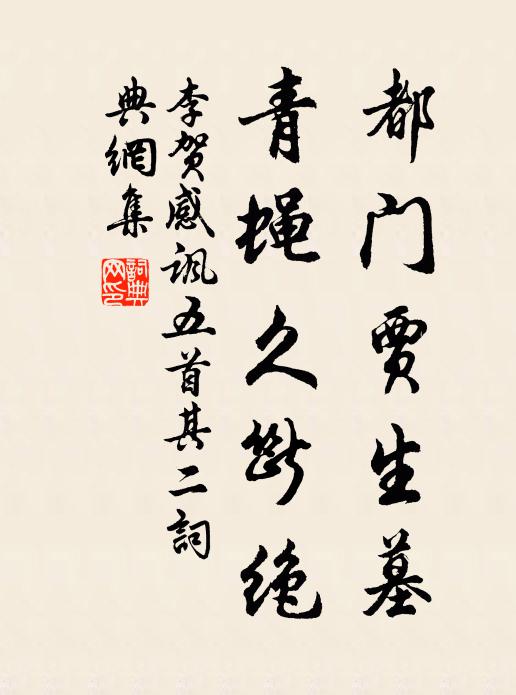 都门贾生墓
青蝇久断绝
李贺感讽五首其二詞
典網集
詞典
网印